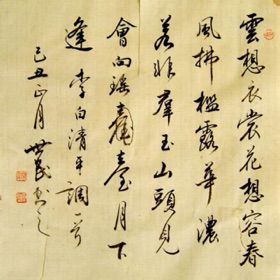 雲想衣裳花想容春
風拂檻露華濃
若非羣玉山頭見
會向瑤臺月下
逢 李白清平調一首
己丑正月